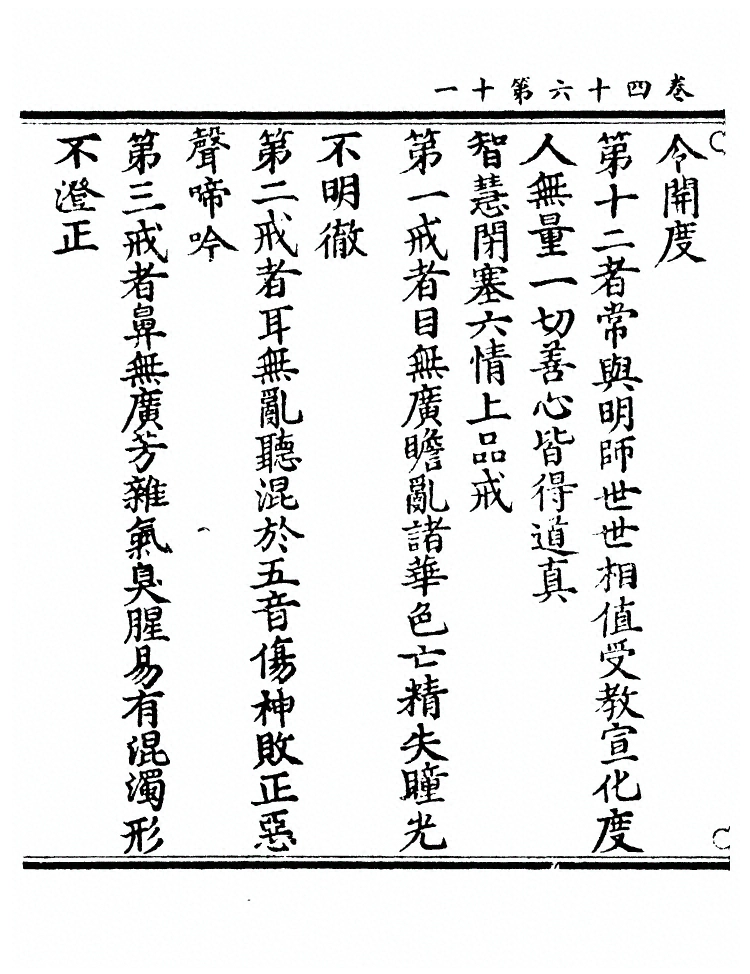 卷四十六第十一
令開度
第十二者常與明師世世相值受教宣化度
人無量一切善心皆得道真
智慧閉塞六情上品戒
第一戒者目無廣瞻亂諸華色亡精失瞳光
不明徹
第二戒者耳無亂聽混於五音傷神敗正惡
聲啼吟
第三戒者鼻無廣芳雜氣臭腥易有混濁形
不澄正